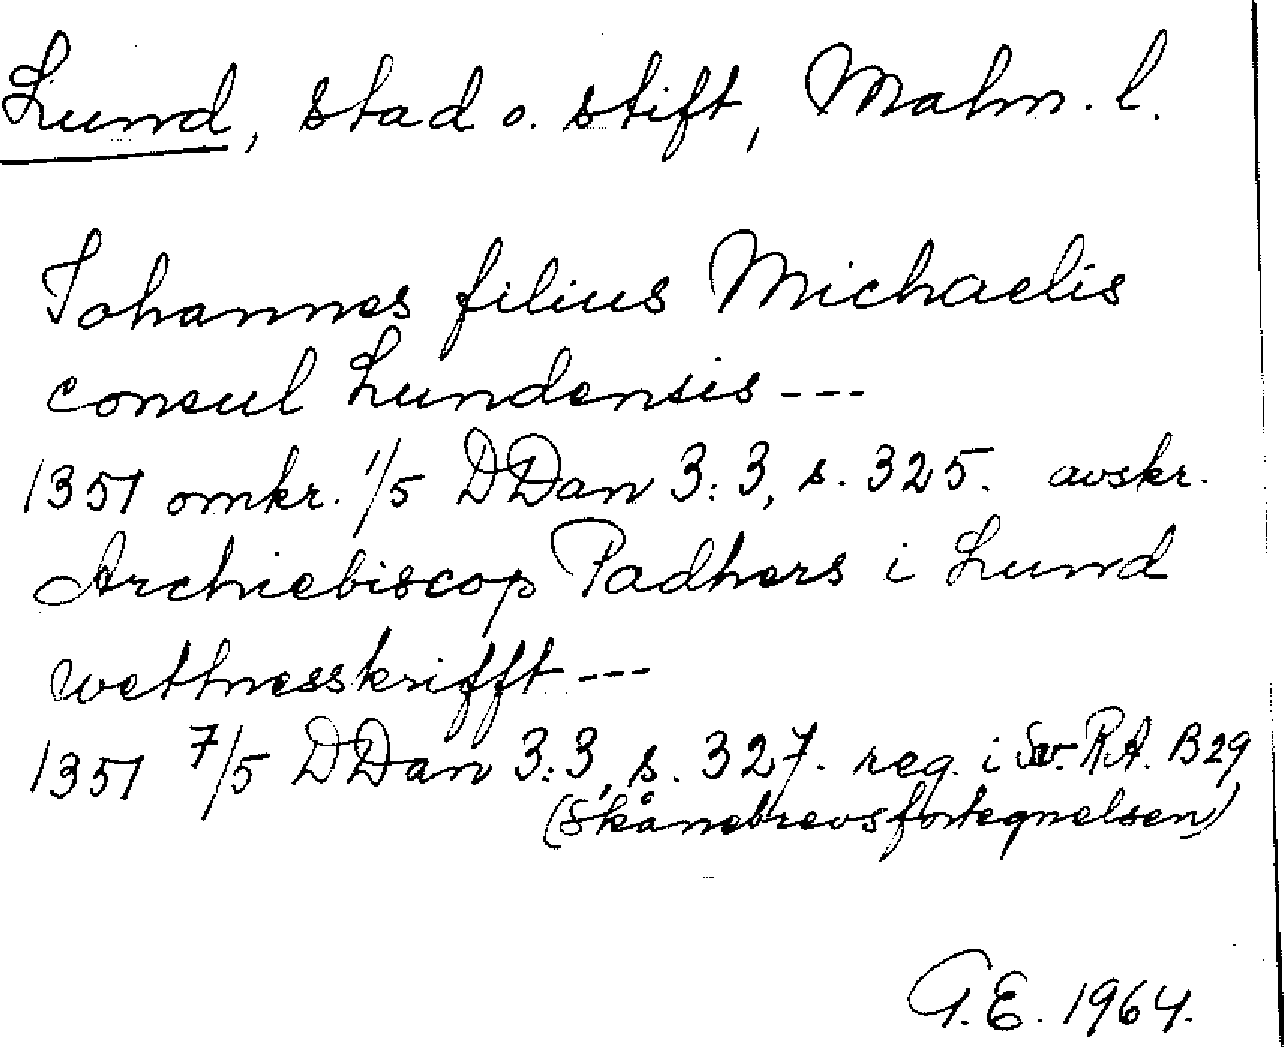 Lund, stad o. stift, Malm. l.
Johannes filius Michaelis
consul Lundensis ---
1351 omkr. 1/5 DDan 3:3, s. 325. avskr.
Archiebiscop Padhers i Lund
wettnesskrifft ---
1351 7/5 DDan 3:3, s. 327. reg. i Sv. RA. B29
(Skånebrevsfortegnelsen)
G.E. 1964.